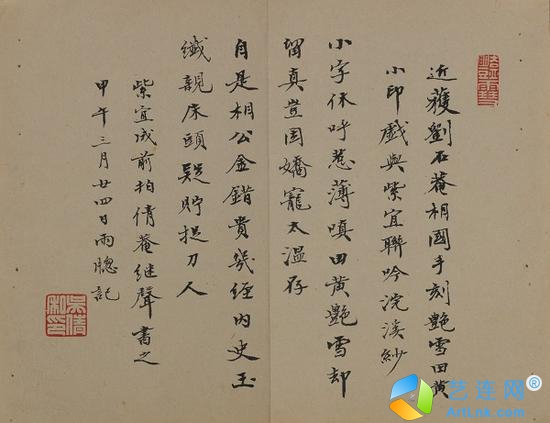 近獲劉石菴相國手刻艷雪田黃
小印戲與紫宜聯吟浣溪紗
小字休呼惹薄嗔田黃艷雪却
留真豈因嬌寵太溫存
自是相公金錯貴幾經內史玉
纖親床頭疑貯捉刀人
紫宜成前拍倩菴継聲書之
甲午三月廿四日雨牕記
吳倩私印
艺连网®
ArtLnk.com